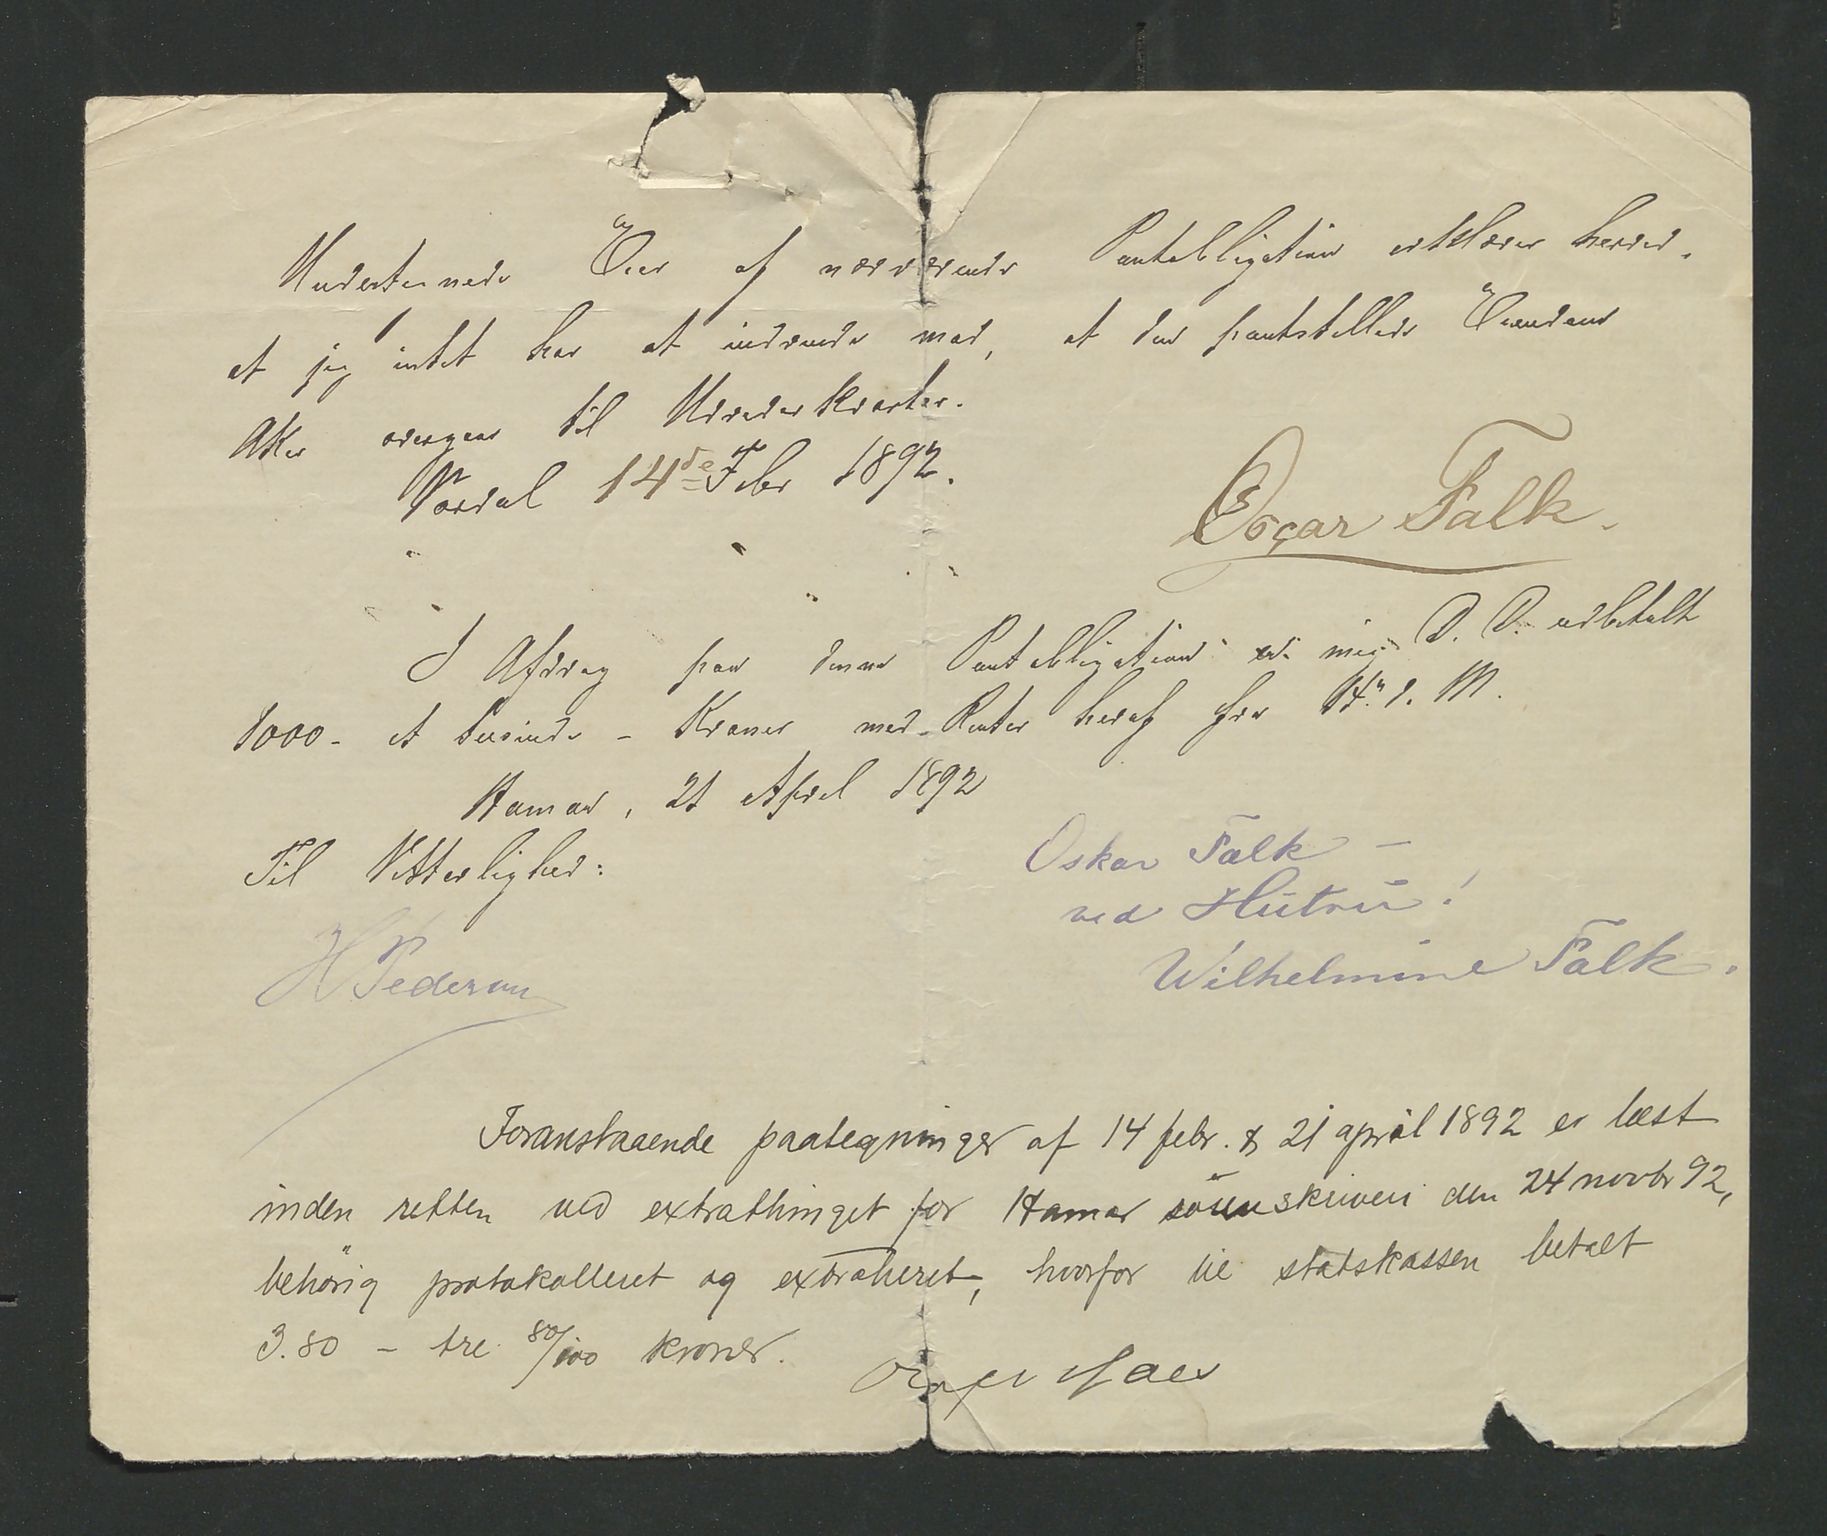 Undertegnede Eier af nærværende Pantobligation erklærer herved,
at jeg intet har at indvende mod, at den pantstillede Eiendom
Aker overgaar til Underkvarter.
Vardal 14de Febr 1892.
Oscar Falk.
I Afdrag paa denne Pantobligation er mig D. D. udbetalt
1000 - et tusinde - Kroner med Renter heraf fra 14. d. M.
Hamar, 21 April 1892
Til Vitterlighed:
Oskar Falk -
ved Hustru!
H Pedersen
Wilhelmine Falk.
Foranstaaende paategninger af 14 febr. & 21 april 1892 er læst
inden retten ved extrathinget for Hamar sorenskriveri den 24 novbr 92,
behørig protokolleret og extraheret, hvorfor til statskassen betalt
3.80 - tre 80/100 kroner.